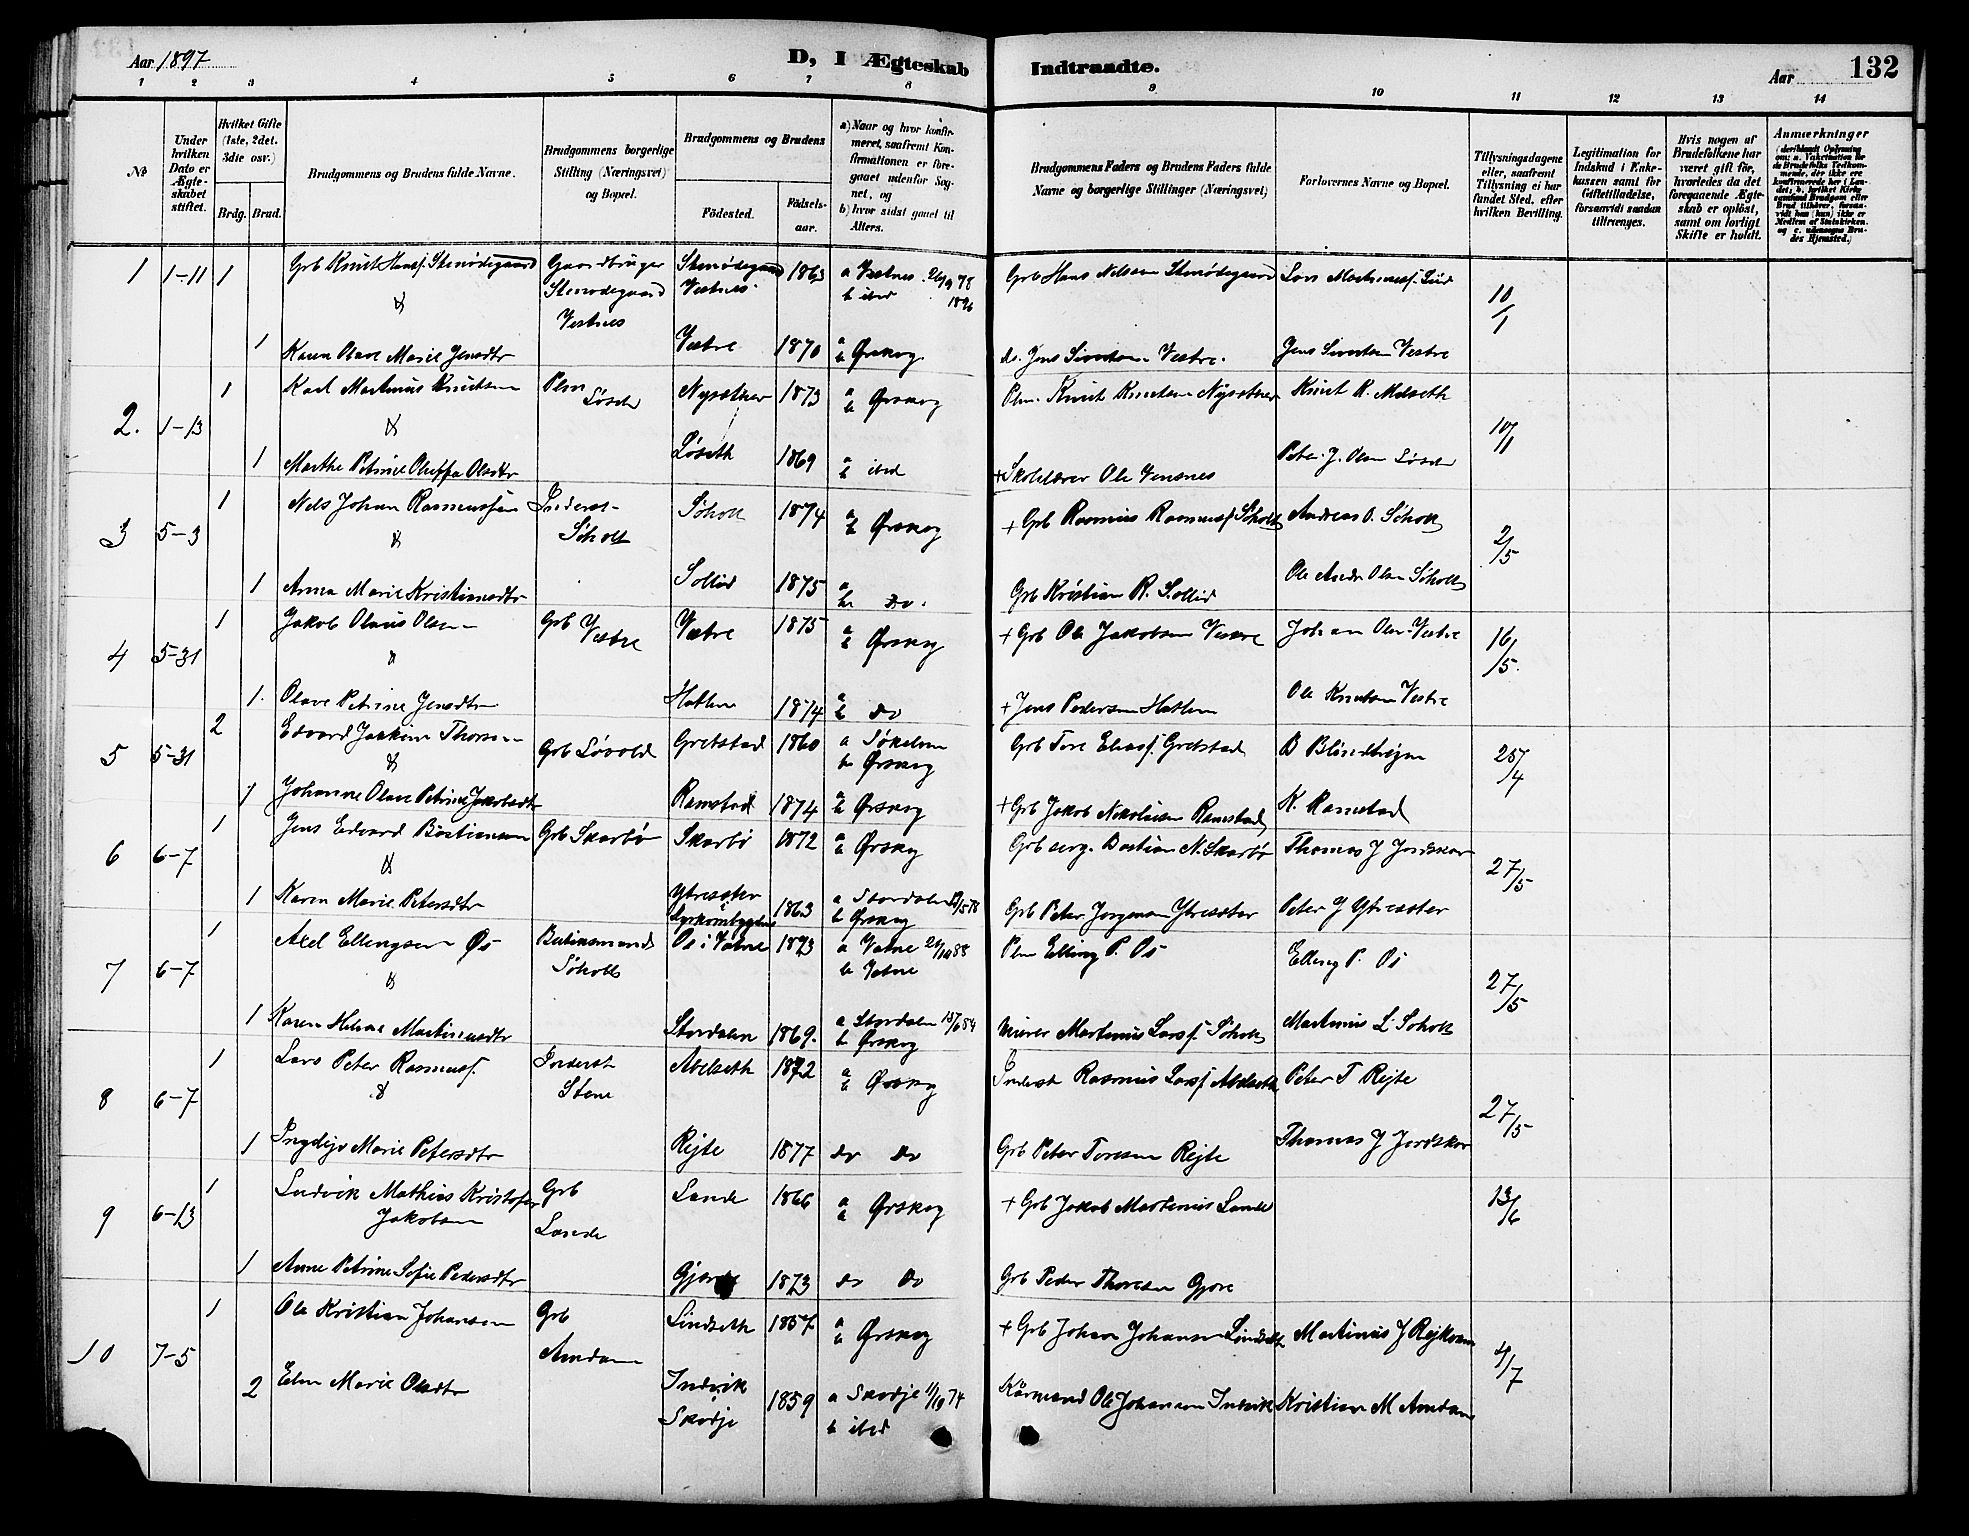 Aar 1897
D, I Ægteskab Indtraadte.
Aar 132
1 2 3 4 5 6 7 8 9 10 11 12 13 14
No
Under hvilken Dato er Ægteskabet stiftet.
Hvilket Gifte (1ste, 2det. 3die osv.)
Brdg. Brud.
Brudgommens og Brudens fulde Navne.
Brudgommens borgerlige Stilling (Næringsvei) og Bopæl.
Brudgommens og Brudens
Fødested. Fødselsaar.
a) Naar og hvor konfirmeret, saafremt Konfirmationen er foregaaet udenfor Sognet, og
b) hvor sidst gaaet til Alters.
Brudgommens Faders og Brudens Faders fulde Navne og borgerlige Stillinger (Næringsvei)
Forlovernes Navne og Bopæl.
Tillysningsdagene eller, saafremt Tillysning ei har fundet Sted, efter hvilken Bevilling.
Legitimation for Indskud i Enkekassen samt for Giftetilladelse, forsaavidt saadan tiltrænges.
Hvis nogen af Brudefolkene har været gift før, hvorledes da det foregaaende Ægteskab er opløst, samt om lovligt Skifte er holdt.
Anmærkninger
1 1-11 1 Grb Knut Hansf. Stenødegaard Gaardbruger Stenødegaard 1863 a Vestnes 26/9 78 Grb Hans Nelssen Stenødegaard Lars Martinusf. Lied 10/1
& Stenødegaard Vestnes Vestnes b ibid 1896
1 Karen Olave Marie Jensdtr Vestre 1870 a b Ørskog do. Jens Sivertsen Vestre. Jens Sivertsen Vestre
2. 1-13 1 Karl Martinus Knudsen Plm Løseth Nysæther 1873 a b Ørskog Plm. Knut Knutsen Nysæther Knut K. Melseth 10/1
&
1 Marthe Petrine Oluffa Olsdtr Løseth 1869 a b ibid + Skolelærer Ole Vensnes Peter J. Olsen Løseth
3 5-3 1 Nels Johan Rasmussen Inderst- Søholt Søholt 1874 a b Ørskog + Grb Rasmus Rasmusf. Søholt Andreas O. Søholt 2/5
&
1 Anna Marie Kristiansdtr Sollid 1875 a b Do. Grb Kristian R. Sollid Ole Andr Olsen Søholt
4 5-31 1 Jakob Olaus Olsen Grb Vestre Vestre 1875 a b Ørskog + Grb Ole Jakobsen Vestre Johan Olsen Vestre 16/5.
&
1. Olave Petrine Jensdtr Hatlen 1874 a b do + Jens Pedersen Hatlen Ole Knutsen Vestre
5 5-31 2 Edvard Joakim Thorsen Grb Løvold Gretstad 1860 a Søkelven b Ørskog Grb Tore Eliasf. Gretstad B Blindheim 25/4
&
1 Johanne Olave Petrine Jakobsdtr Ramstad 1874 a b Ørskog + Grb Jakob Nikolaisen Ramstad K. Ramstad
6 6-7 1 Jens Edvard Bastiansen Grb Skarbø Skarbø 1872 a b Ørskog Grb serg. Bastian N. Skarbø Thomas J Jordskar 27/5
&
1 Karen Marie Petersdtr Ytresæter 1863 a Stordalen b Ørskog Grb Peter Jørgensen Ytresæter Peter J Ytresæter
7 6-7 1 Axel Ellingsen Øs Søholt Os i Vatne 1873 a Vatne b Vatne Plm Elling P. Os Elling P. Os 27/5
&
1 Karen Helene Martinusdtr Stordalen 1869. a Stordalen b Ørskog Murer Martinus Larsf. Søholt Martinus L. Søholt
8 6-7 1 Lars Peter Rasmusf. Inderst Stene Abelseth 1872 a b Ørskog Inderst Rasmus Larsf. Abelseth Peter T Rejte 27/5
&
1 Ingebjø Marie Petersdtr Rejte 1877 do do Grb Peter Toresen Rejte Thomas J Jordskar
9 6-13 1 Ludvik Mathias Kristofer Jakobsen Grb Lande Lande 1866 a b Ørskog + Grb Jakob Martinus Lande 13/6
1 Anne Petrine Sofie Pedersdtr Gjøre 1873 do Do Grb Peder Thoresen Gjøre
10 7-5 1 Ole Kristian Johansen Grb Amdam Lindseth 1857 a b Ørskog + Grb Johan Johansen Lindseth Martinus J Rejkvam 4/7
2 Elen Marie Olsdtr Indvik Skodje 1859 a Skodje 11/10 74 b ibid Kårmand Ole Johansen Indvik Kristian M Amdam